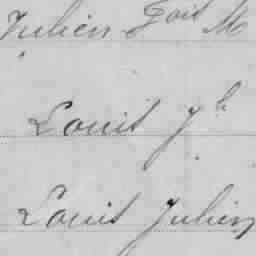 Julien Loit M
Louis Jh
Louis Julien